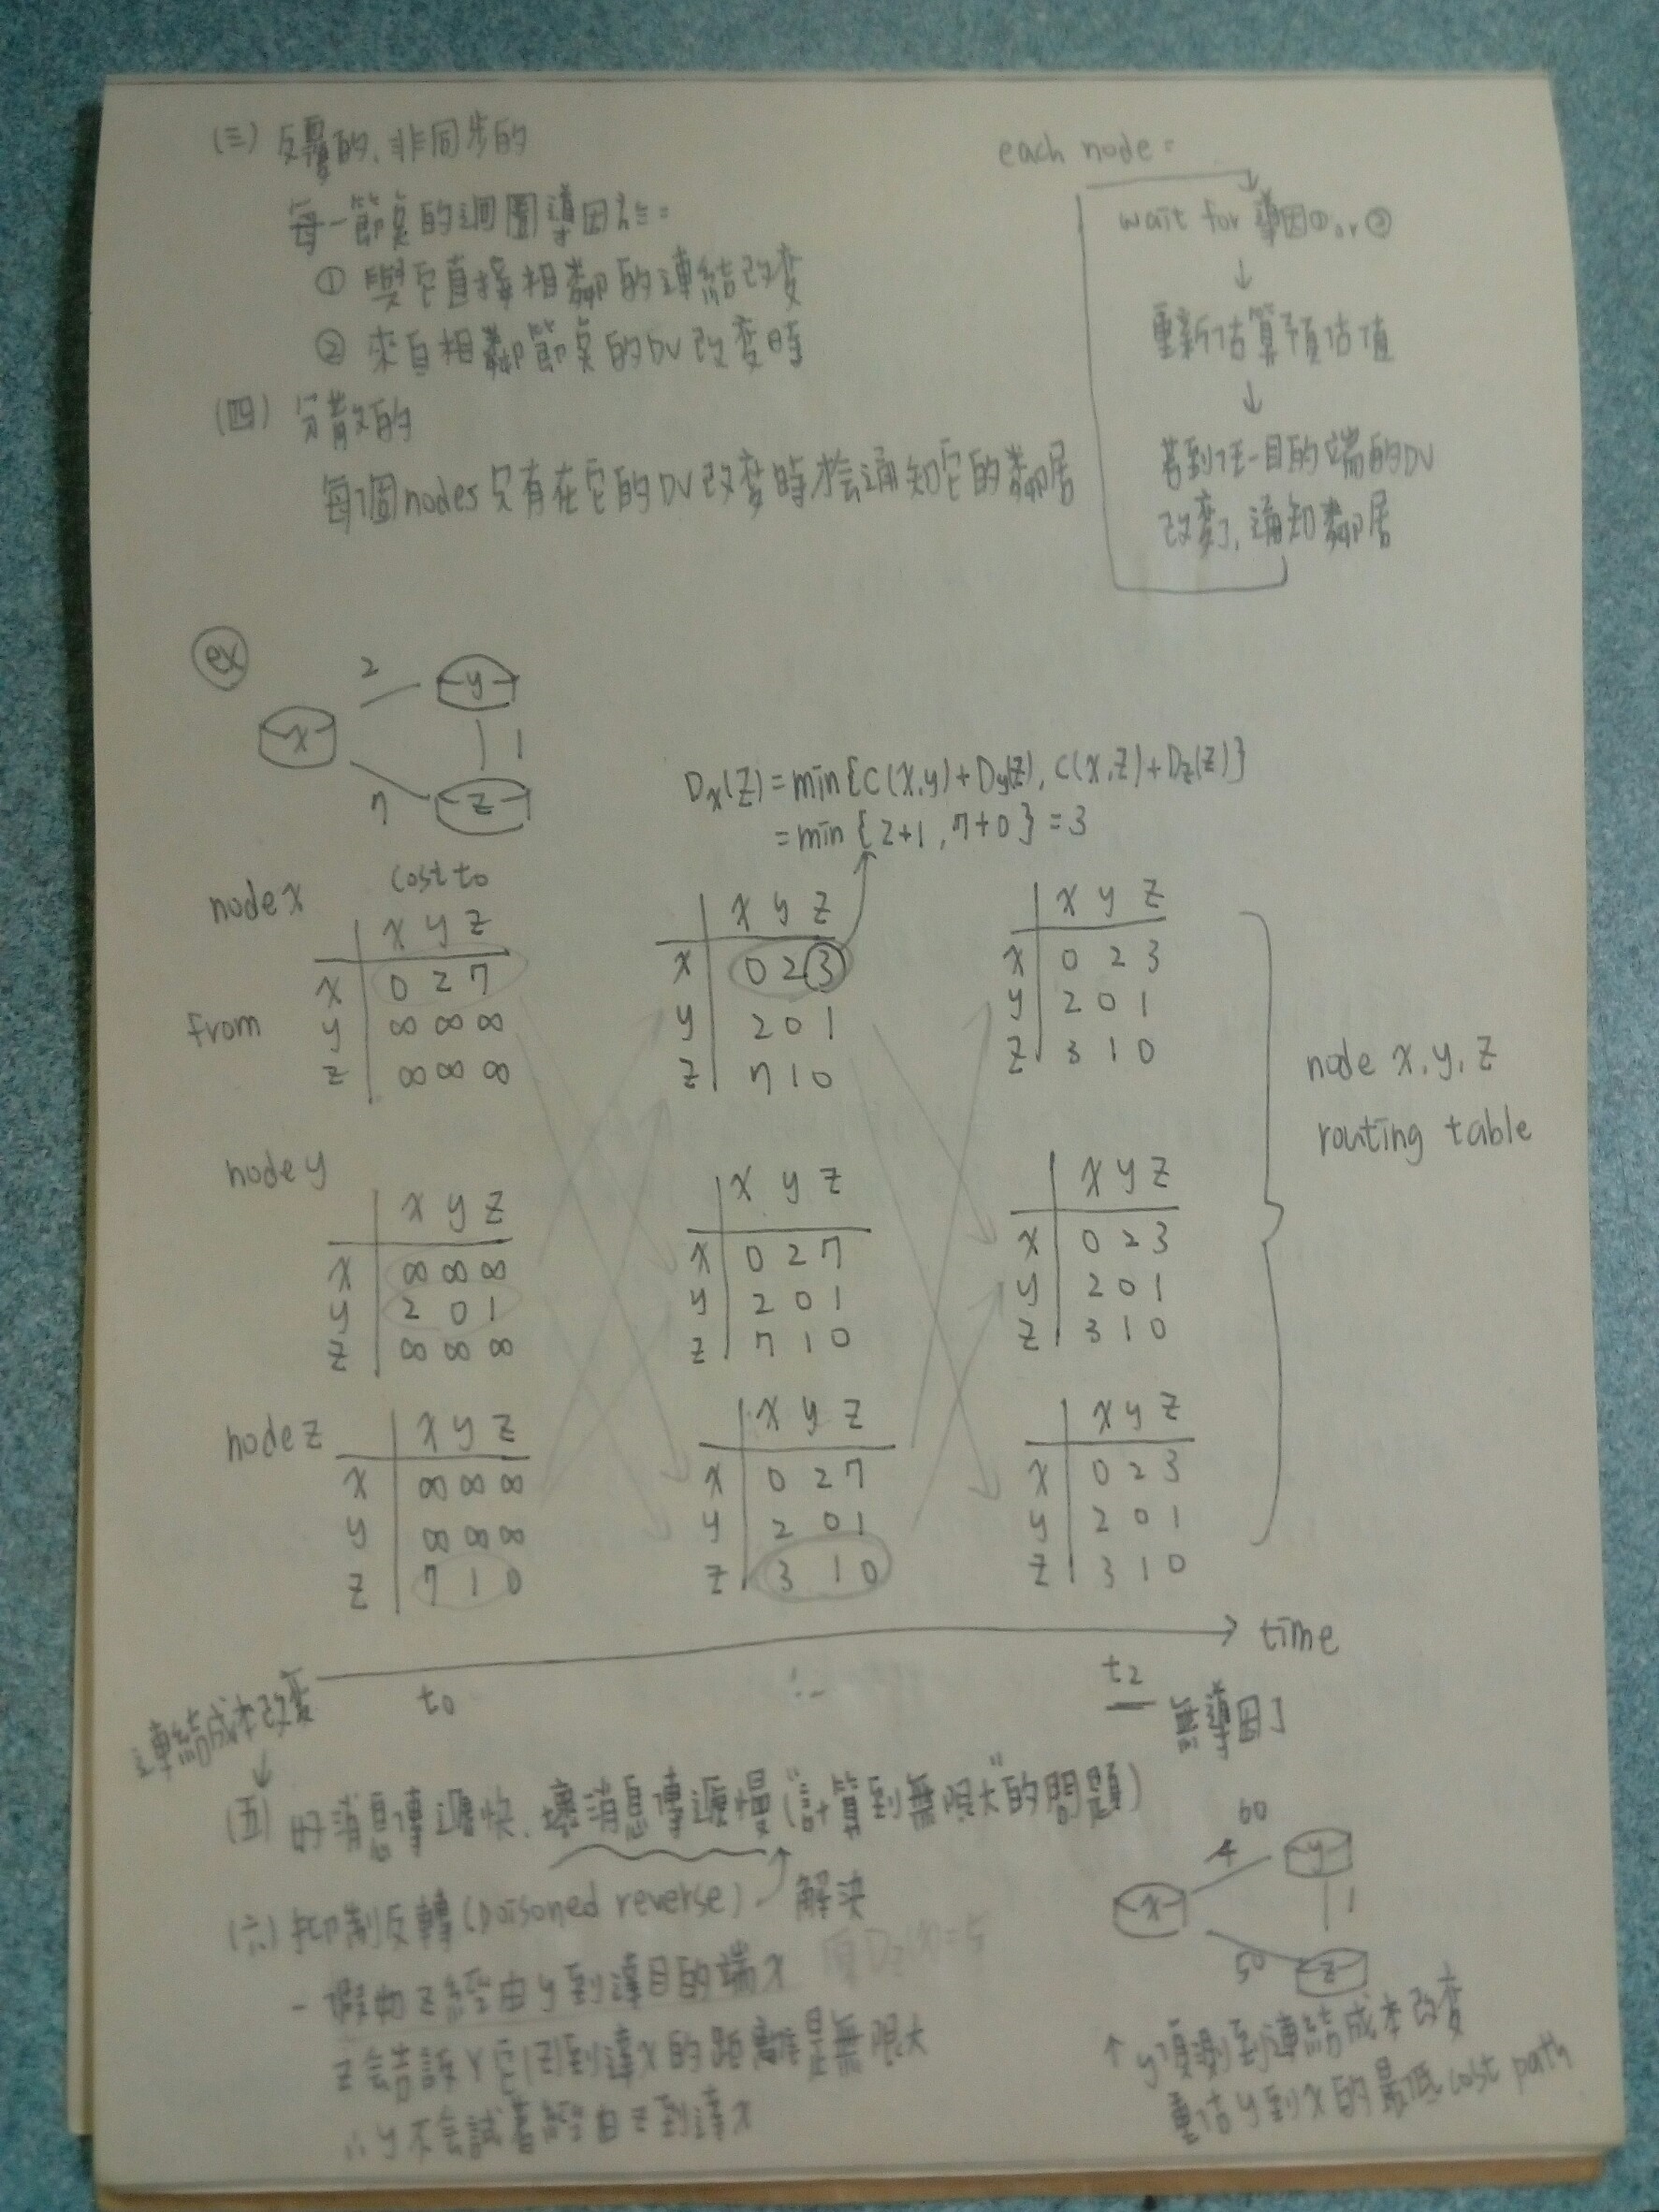 (三) 反覆的、非同步的
每一節點的迴圈導因於=
① 與它直接相鄰的連結改變
② 來自相鄰節點的DV改變時
(四) 分散的
每個nodes只有在它的DV改變時才會通知它的鄰居
each node =
wait for 導因① or ②
↓
重新估算預估值
↓
若到任一目的端的DV
改變了,通知鄰居
ex
2 y
x 1
7 z
Dx(z) = min{C(x,y)+Dy(z), C(x,z)+Dz(z)}
= min{2+1, 7+0} = 3
node x
cost to
x y z
from
x 0 2 7
y ∞ ∞ ∞
z ∞ ∞ ∞
x y z
x 0 2 3
y 2 0 1
z 7 1 0
x y z
x 0 2 3
y 2 0 1
z 3 1 0
node y
x y z
x ∞ ∞ ∞
y 2 0 1
z ∞ ∞ ∞
x y z
x 0 2 7
y 2 0 1
z 7 1 0
x y z
x 0 2 3
y 2 0 1
z 3 1 0
node z
x y z
x ∞ ∞ ∞
y ∞ ∞ ∞
z 7 1 0
x y z
x 0 2 7
y 2 0 1
z 3 1 0
x y z
x 0 2 3
y 2 0 1
z 3 1 0
node x, y, z
routing table
time
t0
t2
無導因了
連結成本改變
↓
(五) 好消息傳遞快、壞消息傳遞慢("計算到無限大"的問題)
(六) 抑制反轉(poisoned reverse) 解決
- 假如z經由y到達目的端x
z會告訴y它(z)到達x的距離是無限大
∴ y不會試著經由z到達x
60
4 y
x 1
50 z
↑ y偵測到連結成本改變
重估y到x的最低cost path